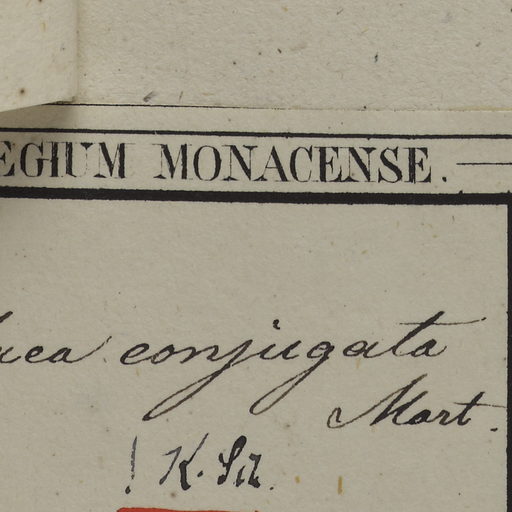 EGIUM MONACENSE.
uca conjugata
Mart.
! K. Sch.